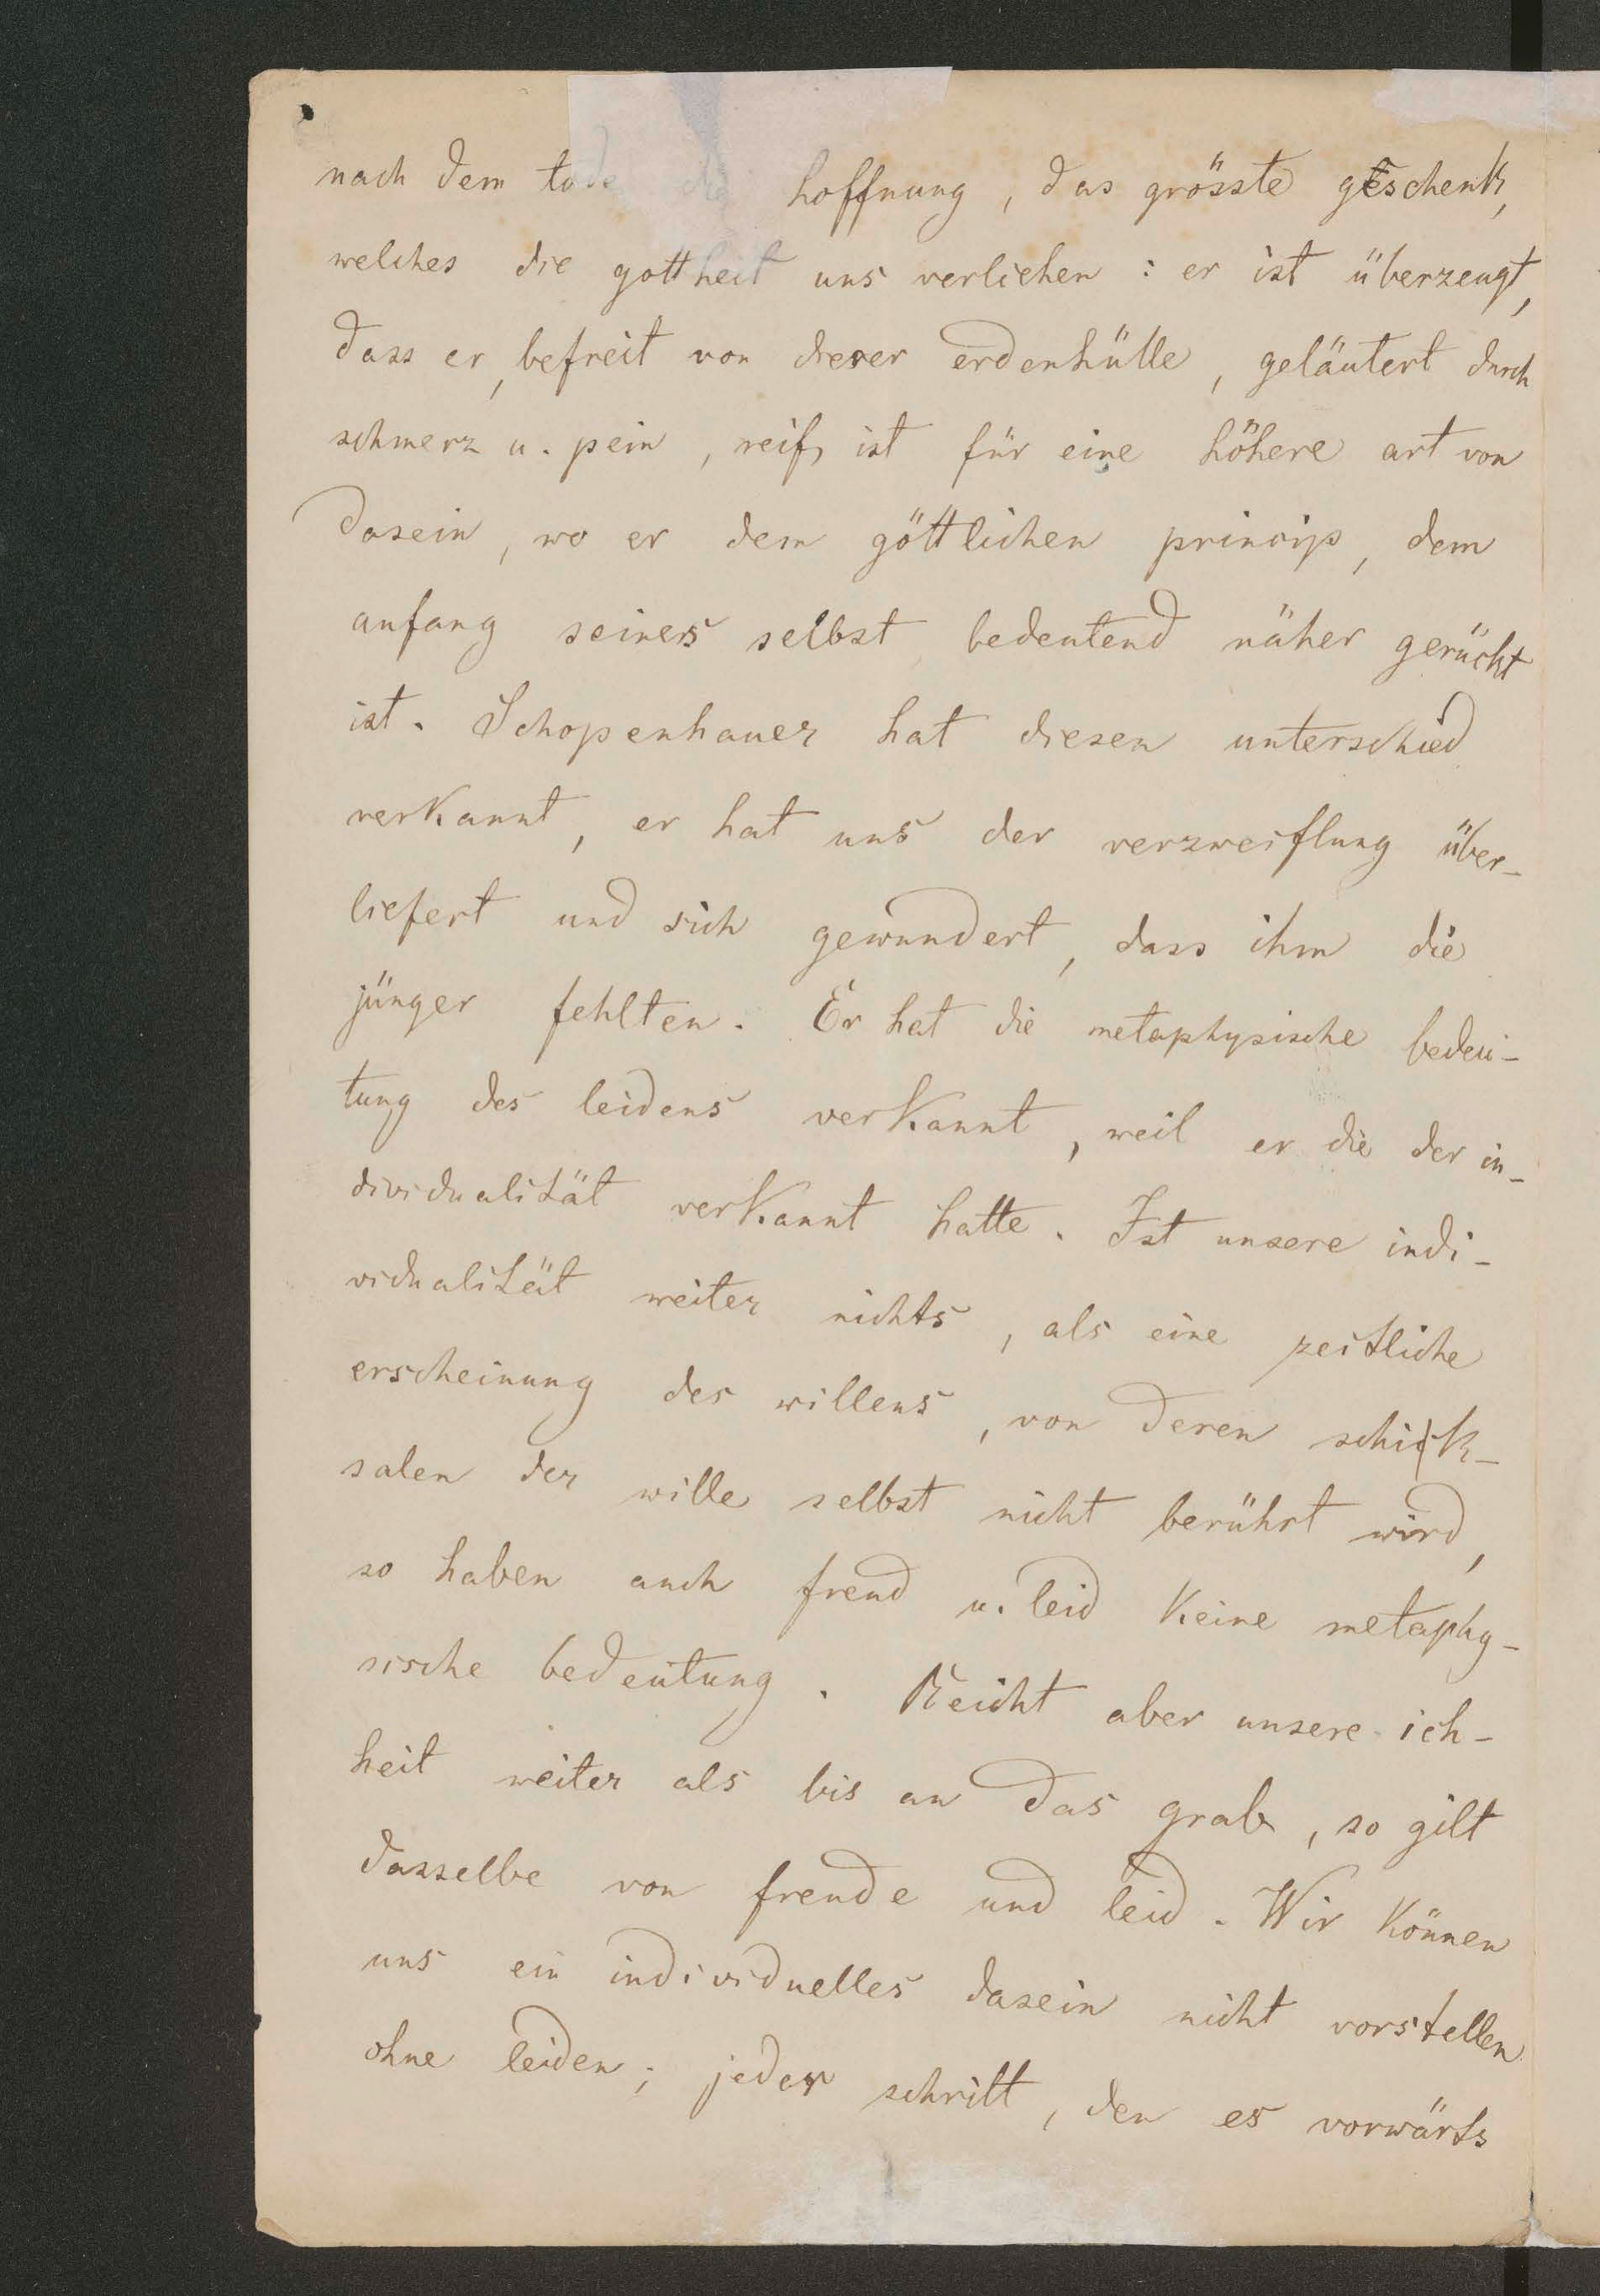 nach dem tode die hoffnung, das grösste geschenk,
welches die gottheit uns verliehen: er ist überzeugt,
dass er, befreit von dieser erdenhülle, geläutert durch
schmerz u. pein, reif ist für eine höhere art von
dasein, wo er dem göttlichen princip, dem
anfang seiner selbst bedeutend näher gerückt
ist. Schopenhauer hat diesen unterschied
verkannt, er hat uns der verzweiflung über-
liefert und sich gewundert, dass ihm die
jünger fehlten. Er hat die metaphysische bedeu-
tung des leidens verkannt, weil er die der in-
dividualität verkannt hatte. Ist unsere indi-
vidualität weiter nichts, als eine zeitliche
erscheinung des willens, von deren schick-
salen der wille selbst nicht berührt wird,
so haben auch freud u. leid keine metaphy-
sische bedeutung. Reicht aber unsere ich-
heit weiter als bis an das grab, so gilt
dasselbe von freude und leid. Wir können
uns ein individuelles dasein nicht vorstellen
ohne leiden; jeder schritt, den es vorwärts